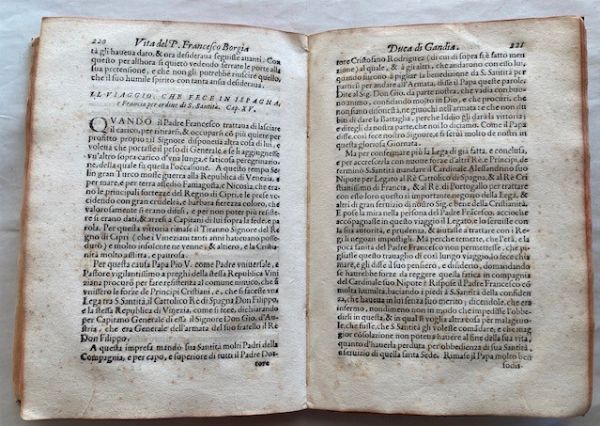 220 Vita del P. Francesco Borgia
tà gli haueua dato, & ora desideraua seguisse auanti. Con
questo per allhora si quietò vedendo serrate le porte alla
sua pretensione, e che non gli potrebbe riuscire quello,
che il suo humile spirito con tanta ansia desideraua.
IL VIAGGIO, CHE FECE IN ISPAGNA,
e Francia per ordine di S. Santità. Cap. XV.
QVANDO il Padre Francesco trattaua di lasciare
il carico, per ritirarsi, & occuparsi cō più quiete per
profitto proprio; il Signore disponeua altra cosa di lui, e
voleua che portasse il peso di Generale, e se li aggiungesse
vn'altro sopra carico d'vna lunga, e faticosa peregrinatione,
della quale fù questa l'occasione. A questo tempo Se-
lin gran Turco mosse guerra alla Republica di Venetia, e
per mare, e per terra assediò Famagosta, e Nicosia, che erano
le principali fortezze del Regno di Cipro, e le prese vc-
cidendo con gran crudeltà, e barbara fierezza coloro, che
valorosamente si erano difesi, e per non poter più resiste-
re si erano dati, & arresi a Capitani di lui sopra la fede, e pa-
rola. Per questa vittoria rimase il Tiranno Signore del Re-
gno di Cipri (che i Veneziani tanti anni haueuano posse-
duto) e molto insolente ne venne, & altiero, e la Christia-
nità molto afflitta, e paurosa.
Per questa causa Papa Pio V. come Padre vniuersale, e
Pastore vigilantissimo a preghi della stessa Republica Vini
ziana procurò per farre resistenza al comune nimico, che si
vnissero le forze de Prencipi Christiani, e, che si facesse vna
Lega tra S. Santità, il Cattolico Rè di Spagna Don Filippo,
e la stessa Republica di Vinezia, come si fece, dichiarando
per Capitano Generale di essa il Signore Don Gio. d'Au-
stria, che era Generale dell'armata del suo fratello il Rè
Don Filippo.
A questa impresa mandò sua Santità molti Padri della
Compagnia, e per capo, e superiore di tutti il Padre Dot-
tore
Duca di Gandia. 221
tore Cristofano Rodriguez (di cui di sopra si è fatto men-
tione) al quale, & à gli altri, che andauano con esso lui,
quando furono à pigliar la benedizione da S. Santità per
partirsi per andare all'Armata, disse il Papa queste parole:
Dite al Sig. Don Gio. da parte nostra, che vadia con buon-
animo, confidando molto in Dio, e che procuri, che
non siano disonestà, ne giuochi nell'armata; e che non du-
biti di dare la Battaglia, perche Iddio gli darà la vittoria;
e ditegli da nostra parte, che noi lo diciamo. Come il Papa
disse, così fece nostro Signore, e fornì la sua promessa in
quella gloriosa Giornata.
Ma per conseguire più la Lega di già fatta, e conclusa,
e per accrescerla con nuoue forze d'altri Rè, e Prencipi, de
terminò S. Santità mandare il Cardinale Alessandrino suo
Nipote per Legato al Rè Cattolico di Spagna, & al Rè Cri
stianissimo di Francia, & al Rè di Portogallo per trattare
con esse loro questi, che importaua il negozio della Lega, &
altri di gran seruizio di nostro Signore, e bene della Cristianità.
E pose la mira nella persona del Padre Francesco, accioche ac-
compagnasse in questo viaggio il Legato, e lo seruisse con
la sua autorità, e prudenza, & aiutasse a trattare con i Re-
gi li negozi impostigli. Ma perche temette, che l'età, e la
poca sanità del Padre Francesco non permettesse, che pi-
gliasse questo trauaglio di così lungo viaggio, lo fece chia-
mare, e gli disse il suo pensiero, e disiderio, domandando
se haurebbe forze da reggere questa fatica in compagnia
del Cardinale suo Nipote? Rispose il Padre Francesco cō
molta humiltà, baciando i piedi a S. Santità della confidenza,
che haueua in lui senza suo merito; dicendole, che era
infermo, nondimeno non in modo che impedisse l'obbe-
dirli in questa, & in qual si voglia altra cosa per malageuo-
le, che fusse, che S. Santità gli volesse comandare, e che mag-
gior cosolazione non poteua hauere al fine della sua vita,
quanto d'hauerla perduta per obbedienza di sua Santità,
e seruizio di quella santa Sede. Rimase il Papa molto ben
sodis-